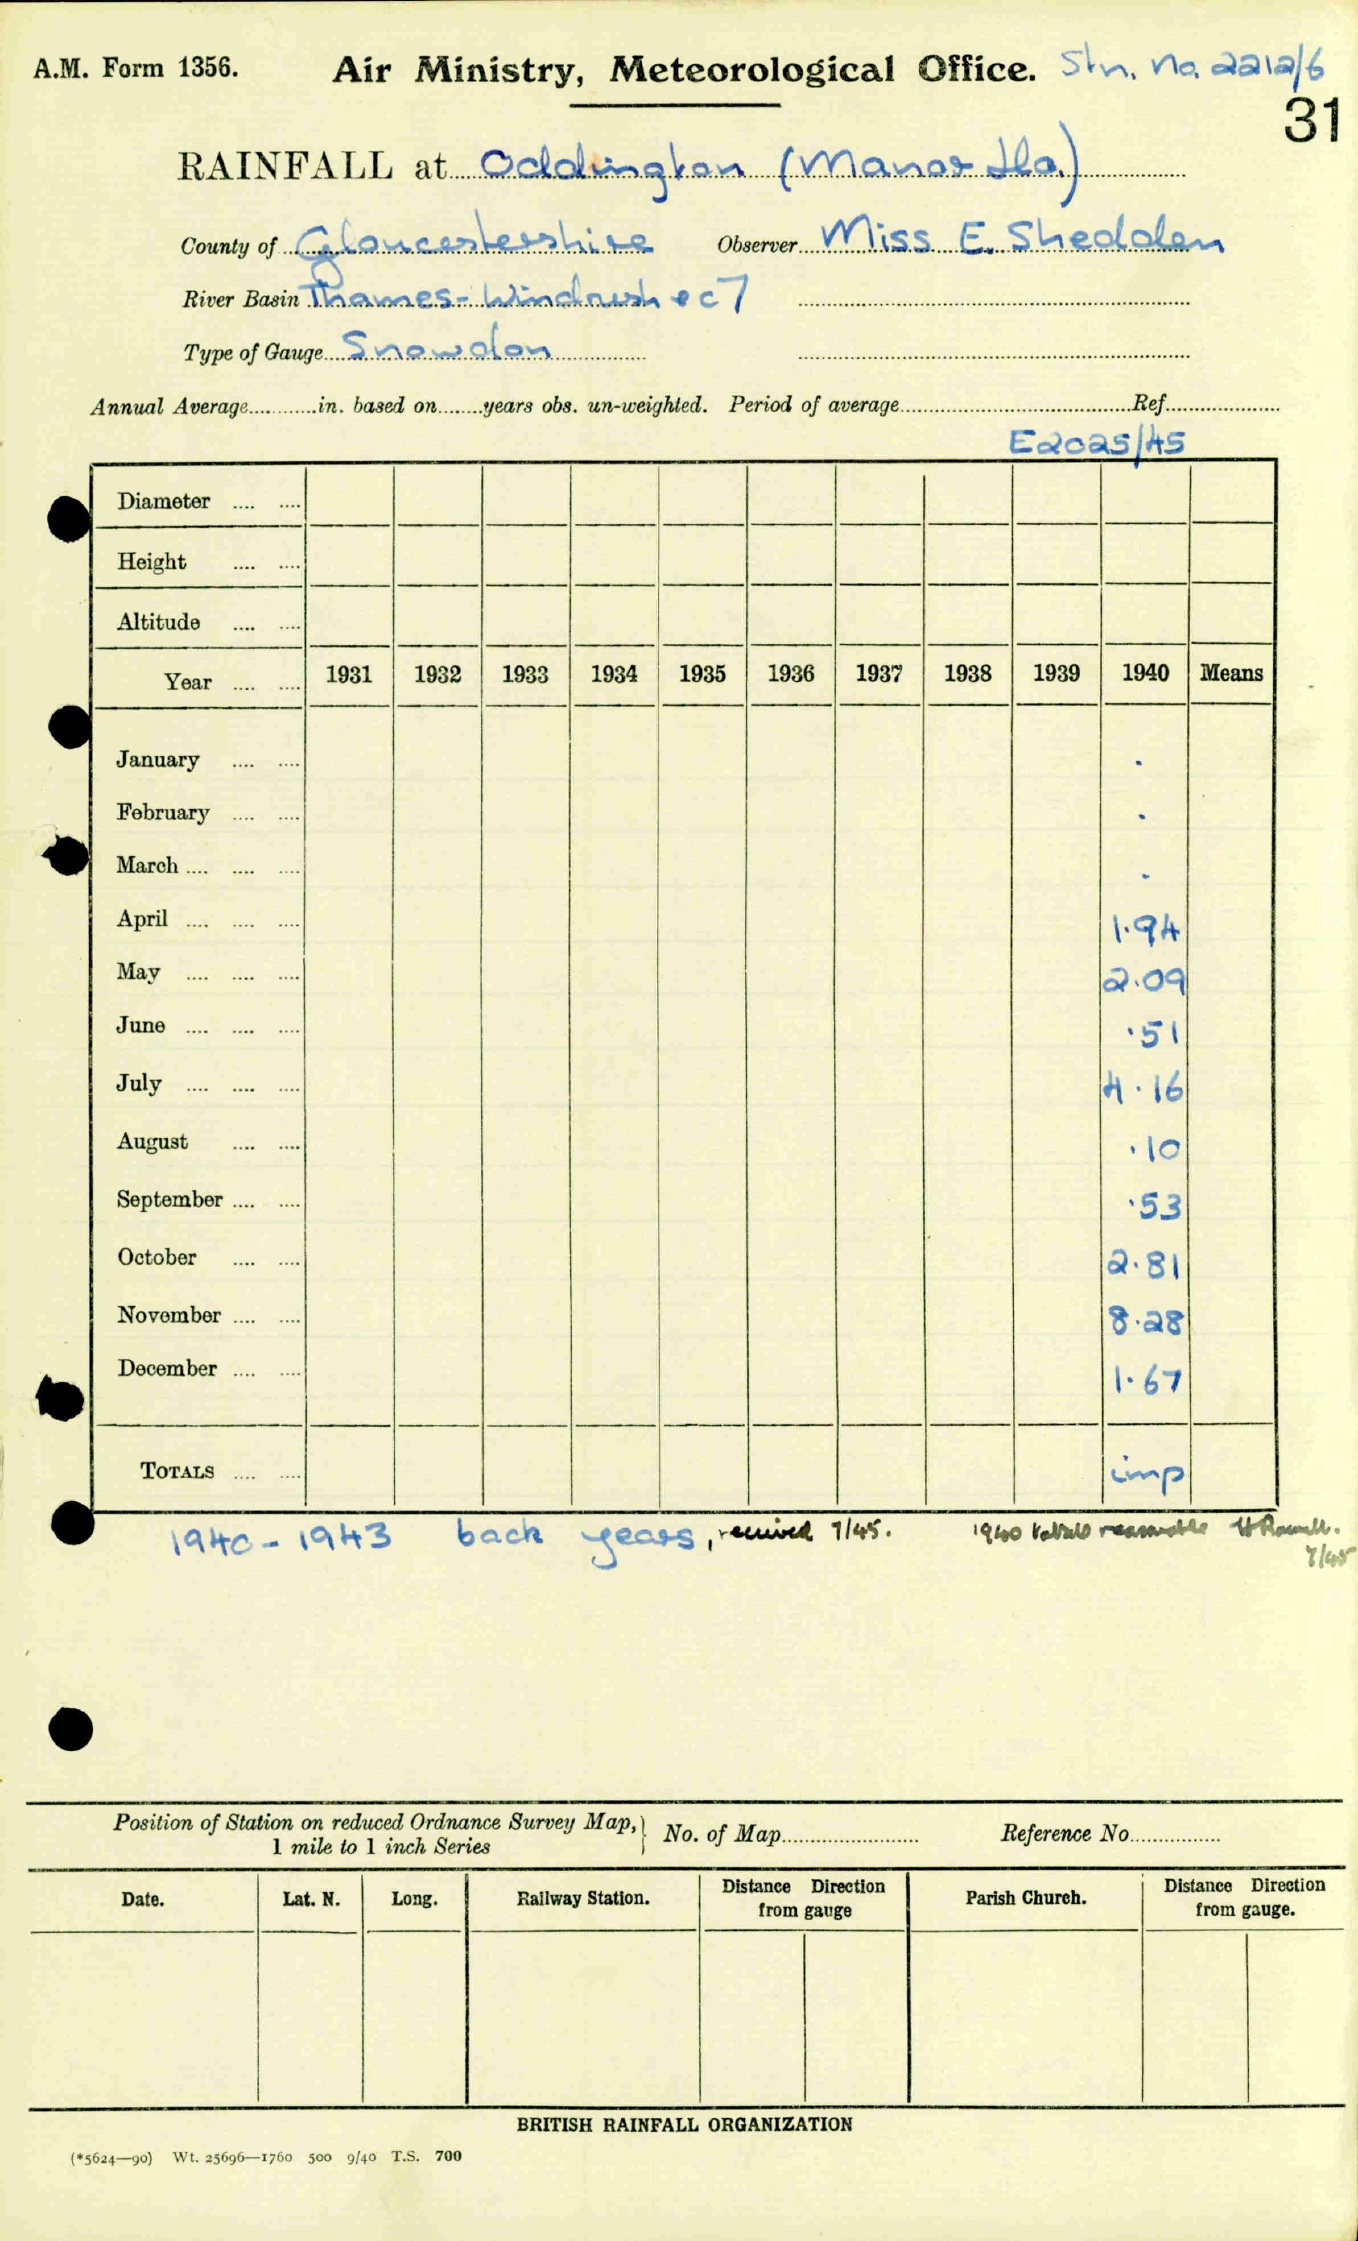 A.M. Form 1356. Air Ministry, Meteorological Office. Stn. No. 2212/6
31
RAINFALL at Oddington (Manor Ho.)
County of Gloucestershire Observer Miss E. Shedden
River Basin Thames - Windrush &c 7
Type of Gauge Snowdon
Annual Average in. based on years obs. un-weighted. Period of average Ref.
E2025/45
Diameter
Height
Altitude
Year 1931 1932 1933 1934 1935 1936 1937 1938 1939 1940 Means
January .
February .
March .
April 1.94
May 2.09
June .51
July 4.16
August .10
September .53
October 2.81
November 8.28
December 1.67
TOTALS imp
1940 - 1943 back years, received 7/45. 1940 totals reasonable
7/45
Position of Station on reduced Ordnance Survey Map, } No. of Map Reference No.
1 mile to 1 inch Series
Date. Lat. N. Long. Railway Station. Distance Direction from gauge Parish Church. Distance Direction from gauge.
BRITISH RAINFALL ORGANIZATION
(*5624—90) Wt. 25696—1760 500 9/40 T.S. 700